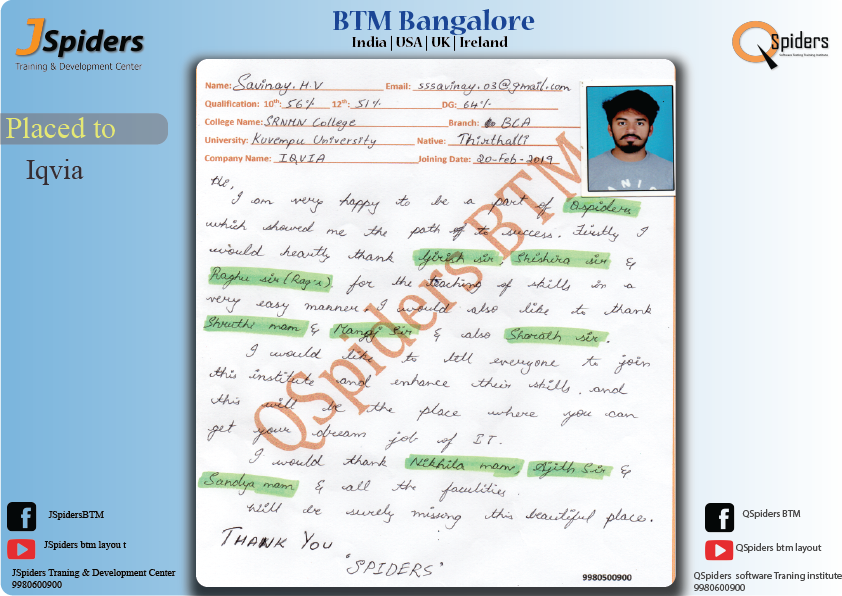 JSpiders
Training & Development Center
BTM Bangalore
India | USA | UK | Ireland
QSpiders
Software Testing Training Institute
Placed to
Iqvia
Name: Savinay. H.V Email: sssavinay.03@gmail.com
Qualification: 10th: 56% 12th: 51% DG: 64%
College Name: SRNMN College Branch: BCA
University: Kuvempu University Native: Thirthalli
Company Name: IQVIA Joining Date: 20-Feb-2019
QSpiders BTM
Hi,
I am very happy to be a part of Qspiders
which showed me the path of to success. Firstly I
would heartly thank Girish sir, Shishira sir &
Raghu sir (Rag-x) for the teaching of skills in a
very easy manner. I would also like to thank
Shruthi mam & Manoj Sir & also Sharath sir.
I would like to tell everyone to join
this institute and enhance their skills. and
this will be the place where you can
get your dream job of IT.
I would thank Nikhita mam, Ajith Sir &
Sandya mam & all the facilities.
will be surely missing this beautiful place.
THANK YOU
'SPIDERS'
9980500900
JSpidersBTM
JSpiders btm layou t
JSpiders Traning & Development Center
9980600900
QSpiders BTM
QSpiders btm layout
QSpiders software Traning institute
9980600900